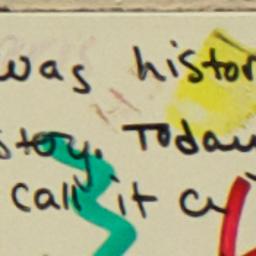 was histor
story. Today
call it a